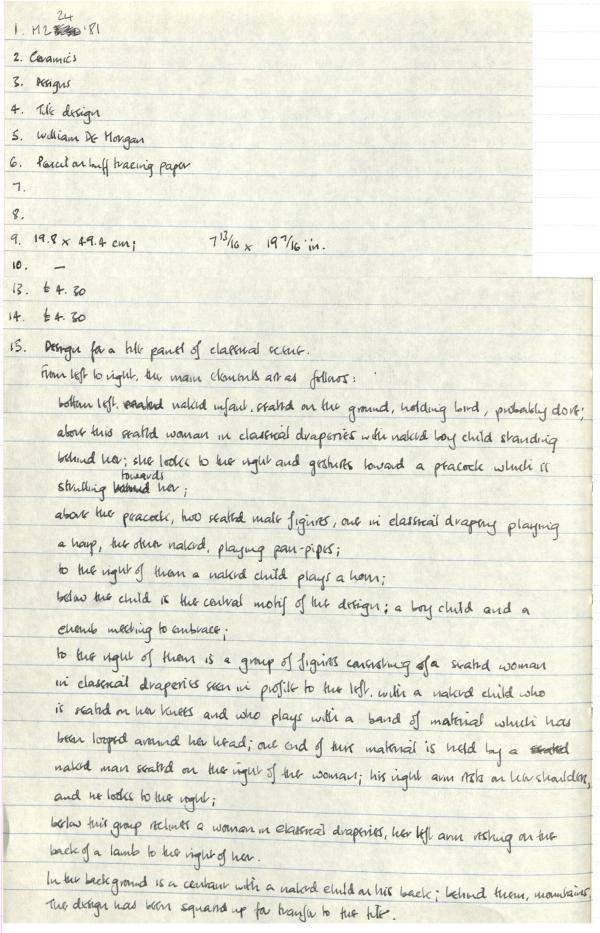 24
1. M2 '81
2. Ceramics
3. Designs
4. Tile design
5. William De Morgan
6. Pencil on buff tracing paper
7.
8.
9. 19.8 x 49.4 cm; 7 13/16 x 19 7/16 in.
10. —
13. £4.30
14. £4.30
15. Design for a tile panel of classical scene.
From left to right, the main elements are as follows:
bottom left, seated naked infant, seated on the ground, holding bird, probably dove;
above this seated woman in classical draperies with naked boy child standing
behind her; she looks to the right and gestures toward a peacock which is
towards
strutting behind her;
above the peacock, two seated male figures, one in classical drapery playing
a harp, the other naked, playing pan-pipes;
to the right of them a naked child plays a horn;
below the child is the central motif of the design; a boy child and a
cherub meeting to embrace;
to the right of them is a group of figures consisting of a seated woman
in classical draperies seen in profile to the left, with a naked child who
is seated on her knees and who plays with a band of material which has
been looped around her head; one end of this material is held by a seated
naked man seated on the right of the woman; his right arm rests on her shoulders,
and he looks to the right;
below this group reclines a woman in classical draperies, her left arm resting on the
back of a lamb to the right of her.
In the background is a centaur with a naked child on his back; behind them, mountains.
The design has been squared up for transfer to the tile.